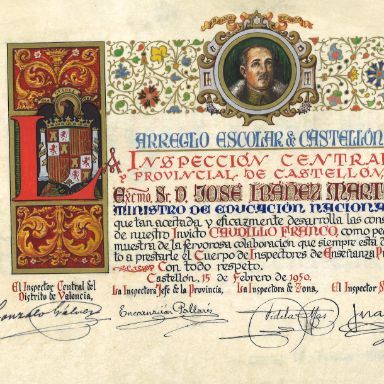 ARREGLO ESCOLAR & CASTELLÓN
LA INSPECCIÓN CENTRAL
Y PROVINCIAL DE CASTELLÓN,
EXCMO. SR. D. JOSÉ IBÁÑEZ MART
MINISTRO DE EDUCACIÓN NACIONAL
que tan acertada, y eficazmente desarrolla las con
de nuestro Invicto CAUDILLO FRANCO, como pe
muestra de la fervorosa colaboración que siempre está
to a prestarle el Cuerpo de Inspectores de Enseñanza P
Con todo respeto.
Castellón, 15 de Febrero de 1950.
El Inspector Central del Distrito de Valencia,
La Inspectora Jefe de la Provincia,
La Inspectora de Zona,
El Inspector
Encarnación Pallarés